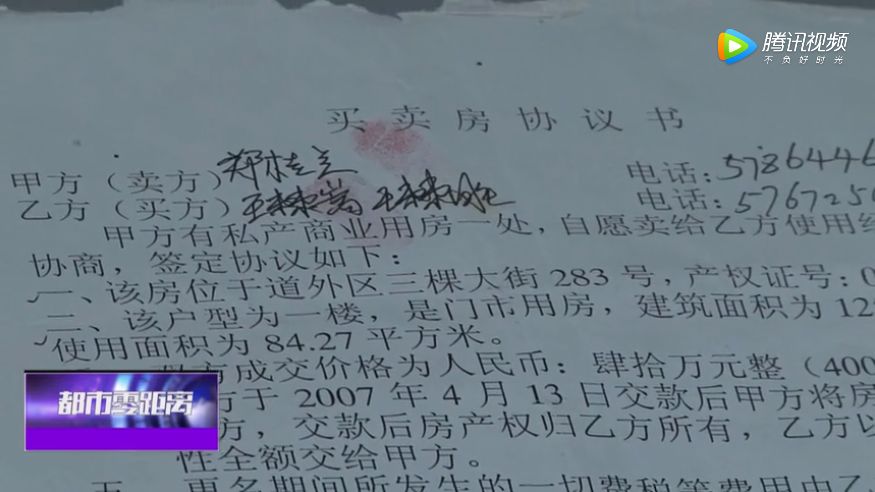 腾讯视频
不负好时光
买卖房协议书
甲方（卖方）郑桂兰 电话：5786446
乙方（买方） 电话：5767256
甲方有私产商业用房一处，自愿卖给乙方使用经
协商，签定协议如下：
一、该房位于道外区三棵大街 283 号，产权证号：0
二、该户型为一楼，是门市用房，建筑面积为 12
使用面积为 84.27 平方米。
方成交价格为人民币：肆拾万元整（400
方于 2007 年 4 月 13 日交款后甲方将房
方，交款后房产权归乙方所有，乙方以
性全额交给甲方。
五、更名期间所发生的一切费税等费用由乙
都市零距离